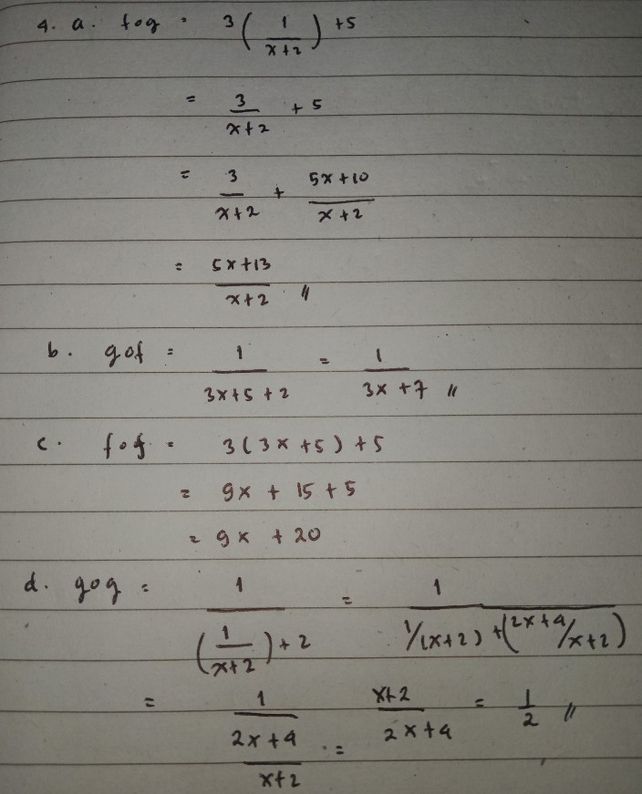 4. a. fog = 3 ( 1/(x+2) ) + 5
= 3/(x+2) + 5
= 3/(x+2) + (5x+10)/(x+2)
= (5x+13)/(x+2) //
b. gof = 1/(3x+5+2) = 1/(3x+7) //
c. fof = 3(3x+5)+5
= 9x + 15 + 5
= 9x + 20
d. gog = 1/((1/(x+2))+2) = 1/(1/(x+2) + (2x+4/x+2))
= 1/((2x+4)/(x+2)) = (x+2)/(2x+4) = 1/2 //